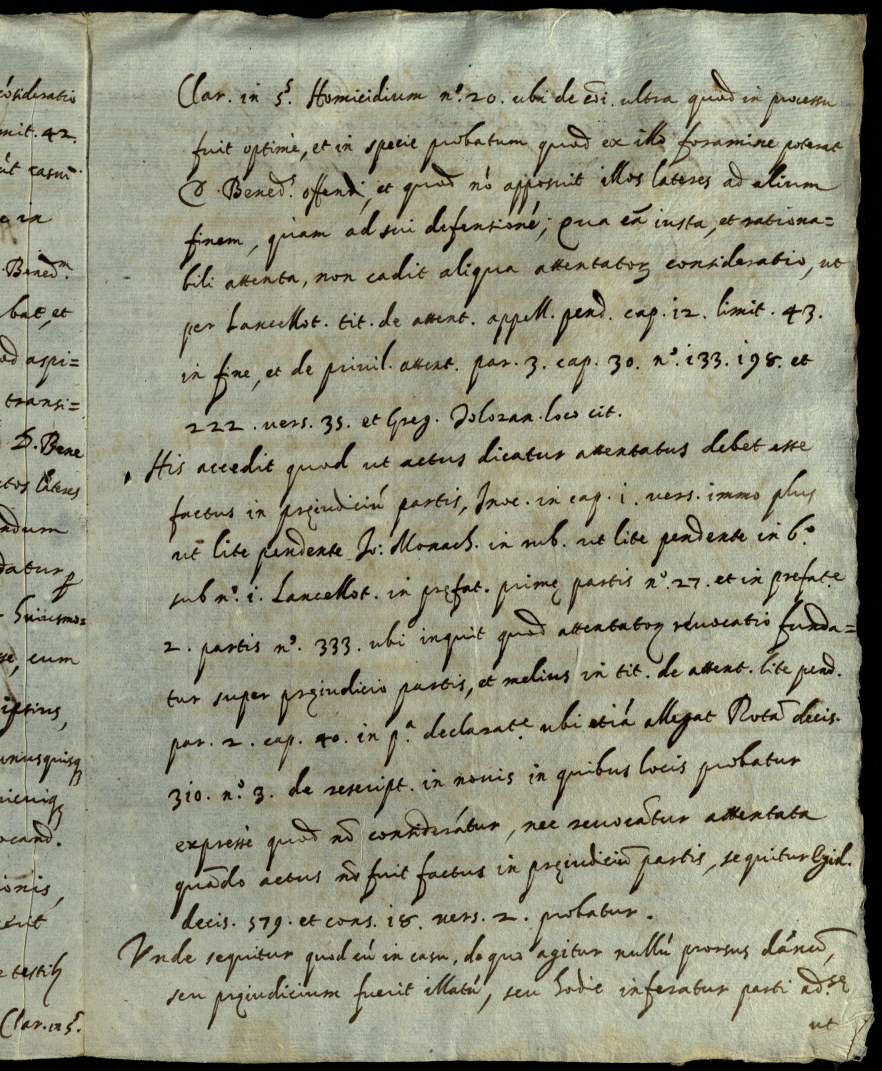 cósideratio
mit. 42.
út casuī
e in
. Bened.m
bat, et
od aspi=
transi=
D. Bene
ctos lateres
ndum
datur
huiusmo=
se, cum
ipsius,
unusquisq
nicuiq
ocand.
ionis,
erit
e testib
Clar. in §.
Clar. in §.s Homicidium n.o 20. ubi de cōi. ultra quod in processu
fuit optimè, et in specie probatum quod ex illo foramine poterat
D. Bened.s offendi, et quod nó apposuit illos lateres ad alium
finem, quàm ad sui defensioné; Qua cā iusta, et rationa=
bili attenta, non cadit aliqua attentatoꝝ consideratio, ut
per Lancellot. tit. de attent. appell. pend. cap. 12. limit. 43.
in fine, et de privil. attent. par. 3. cap. 30. n.o 133. 198. et
222. vers. 35. et Greg. Tolozan. loco cit.
His accedit quod ut actus dicatur attentatus debet esse
factus in pręiudiciú partis, Inoc. in cap. 1. vers. immo plus
ut lite pendente Jo: Monach. in rub. ut lite pendente in 6.o
sub n.o 1. Lancellot. in pręfat. primę partis n.o 27. et in prefat.e
2. partis n.o 333. ubi inquit quod attentatoꝝ revocatio funda=
tur super pręiudicio partis, et melius in tit. de attent. lite pend.
par. 2. cap. 40. in p.a declarat.e ubi etiá allegat Rotā decis.
310. n.o 3. de rescript. in novis in quibus locis probatur
expressè quod nō consideràtur, nec revocātur attentata
quādo actus nō fuit factus in pręiudiciū partis, sequitur Gyid.
decis. 579. et cons. 18. vers. 2. probatur.
Unde sequitur quod cú in casu, de quo agitur nullú prorsus dānū,
seu pręiudicium fuerit illatú, seu hodie inferatur parti ad.se
ut